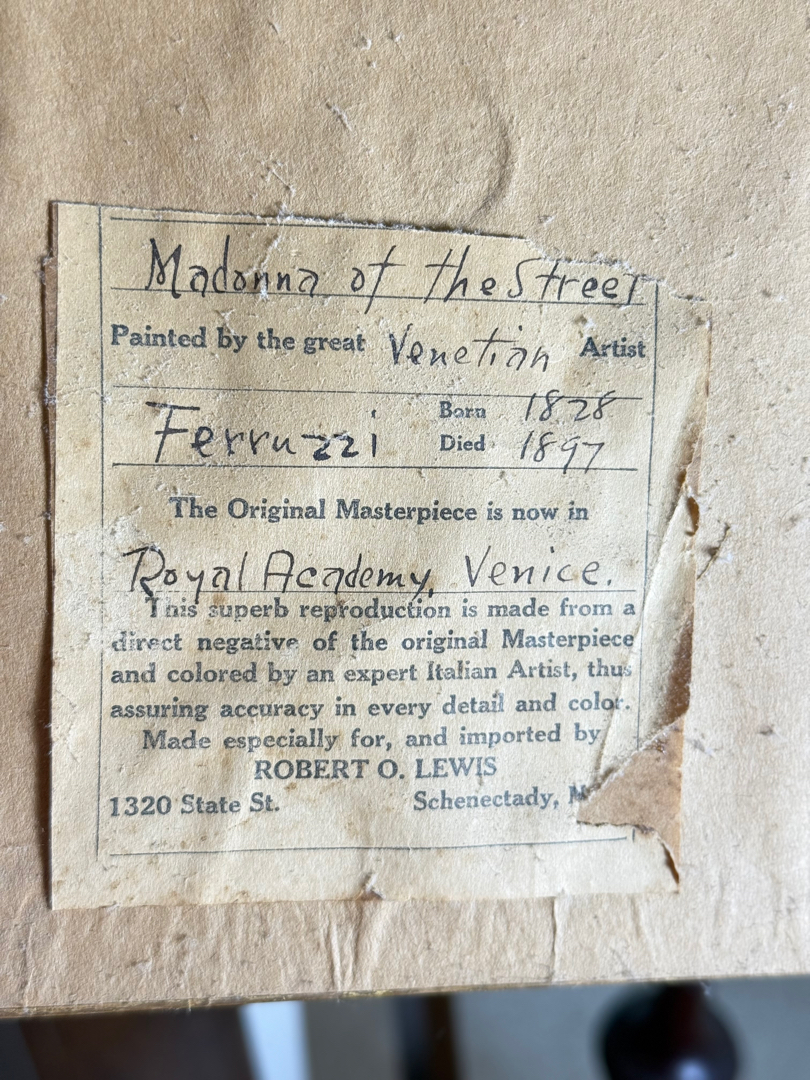 Madonna of the Street
Painted by the great Venetian Artist
Ferruzzi Born 1828
Died 1897
The Original Masterpiece is now in
Royal Academy, Venice.
This superb reproduction is made from a
direct negative of the original Masterpiece
and colored by an expert Italian Artist, thus
assuring accuracy in every detail and color.
Made especially for, and imported by
ROBERT O. LEWIS
1320 State St. Schenectady,